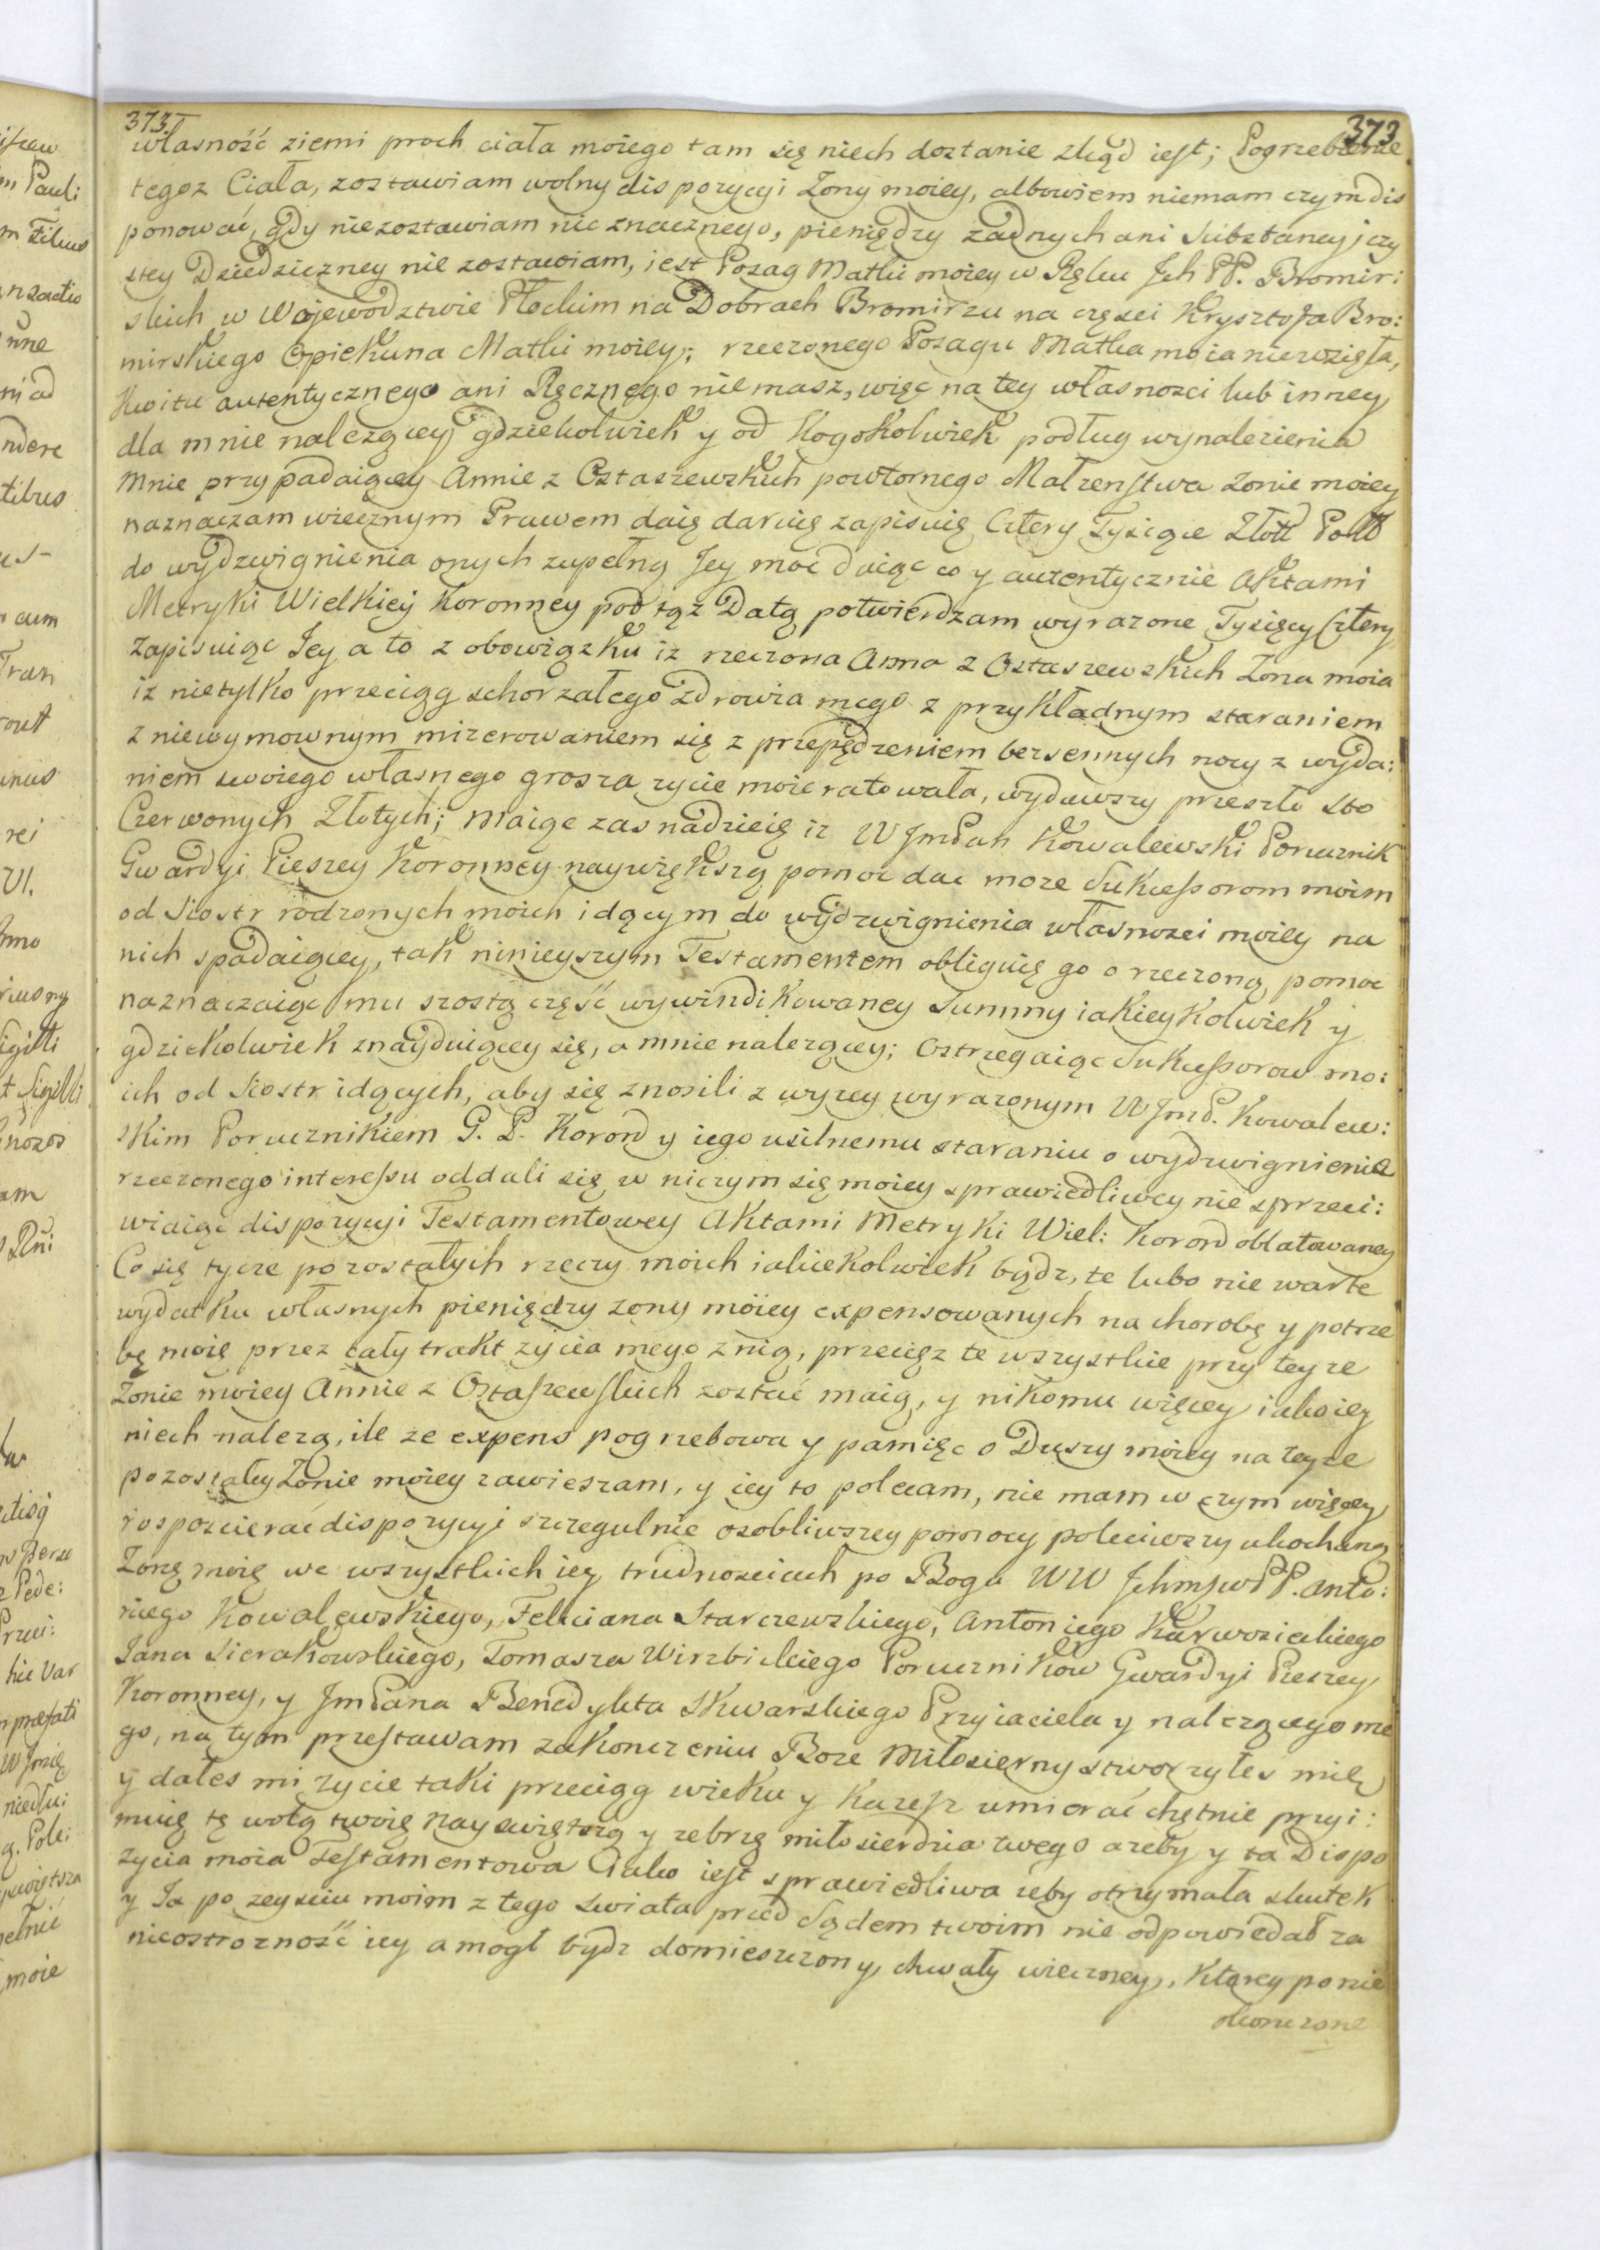 373. 373
własność ziemi proch ciała moiego tam się niech dostanie zkąd iest; Pogrzebienie
tegoz Ciała, zostawiam wolny dispozycyi Zony moiey, albowiem niemam czym dis
ponować, gdy niezostawiam nic znacznego, pieniędzy zadnych ani Substancyi czy
stey Dziedziczney nie zostawiam, iest Posag Matki moiey w Ręku Jch PP. Bromir:
skich w Wojewodztwie Płockim na Dobrach Bromirzu na częsci Krysztofa Bro:
mirskiego Opiekuna Matki moiey; rzeczonego Posagu Matka moia niewzięła,
Kwitu autentycznego ani Ręcznego nie masz, więc na tey własnosci lub inney
dla mnie nalezącey gdziekolwiek y od kogokolwiek podług wynalezienia
mnie przypadaiącey Annie z Ostaszewskich powtornego Małzenstwa Zonie moiey
naznaczam wiecznym Prawem daię daruię zapisuię Cztery Tysiące Złott Poll
do wydzwignienia onych zupełną Jey moc daiąc co y autentycznie Aktami
Metryki Wielkiey Koronney pod tąz Datą potwierdzam wyrazone Tysięcy Cztery
Zapisuiąc Jey a to z obowiązku iz rzeczona Anna z Ostaszewskich Zona moia
iz nietylko przeciąg schorzałego zdrowia mego z przykładnym staraniem
z niewymownym mizerowaniem się z przepędzeniem bezsennych nocy z wyda:
niem swoiego własnego grosza zycie moie ratowała, wydawszy przeszło sto
Czerwonych Złotych; Maiąc zas nadzieię iz W JmPan Kowalewski Porucznik
Gwardyi Pieszey Koronney naywiększą pomoc dac moze Sukcessorom moim
od Siostr rodzonych moich idącym do wydzwignienia własnosci moiey na
nich spadaiącey, tak ninieyszym Testamentem obliguię go o rzeczoną pomoc
naznaczaiąc mu szostą część wywindikowaney Summy iakieykolwiek y
gdziekolwiek znayduiącey się, a mnie nalezącey; Ostrzegaiąc Sukcessorow mo:
ich od Siostr idących, aby się znosili z wyzey wyrazonym W JmP. Kowalew:
skim Porucznikiem G. P. Koron y iego usilnemu staraniu o wydzwignienie
rzeczonego interessu oddali się w niczym się moiey sprawiedliwey nie sprzeci:
wiaiąc dispozycyi Testamentowey Aktami Metryki Wiel: Koron oblatowaney
Co się tycze pozostałych rzeczy moich iakiekolwiek bądz, te lubo nie warte
wydatku własnych pieniędzy zony moiey expensowanych na chorobę y potrze
bę moię przez cały trakt zycia mego z nią, przecięz te wszystkie przy teyze
Zonie moiey Annie z Ostaszewskich zostać maią, y nikomu więcey iako iey
niech nalezą, ile ze expens pogrzebowa y pamięc o Duszy moiey na teyze
pozostałey Zonie moiey zawieszam, y iey to polecam, nie mam w czym więcey
rospościerać dispozycyi szczegulnie osobliwszey pomocy poleciwszy ukochaną
Zonę moię we wszystkich iey trudnosciach po Bogu WW JchmscPP. Anto:
niego Kowalewskiego, Feliciana Starczewskiego, Antoniego Karwosieckiego
Jana Sierakowskiego, Tomasza Wirzbickiego Porucznikow Gwardyi Pieszey
Koronney, y JmPana Benedykta Skwarskiego Przyiaciela y nalezącego me
go, na tym przestawam zakonczeniu Boze Miłosierny stworzyłeś mię
y dałes mi zycie taki przeciąg wieku y kazesz umierać chętnie przyi:
muię tę wolą twoię Nayswiętszą y zebrzę miłosierdzia twego azeby y ta Dispo
zycia moia Testamentowa iako iest sprawiedliwa zeby otrzymała skutek
y Ja po zeysciu moim z tego swiata przed Sądem twoim nie odpowiedał za
nieostrozność iey a mogł bydz domieszczony chwały wieczney, ktorey ponie